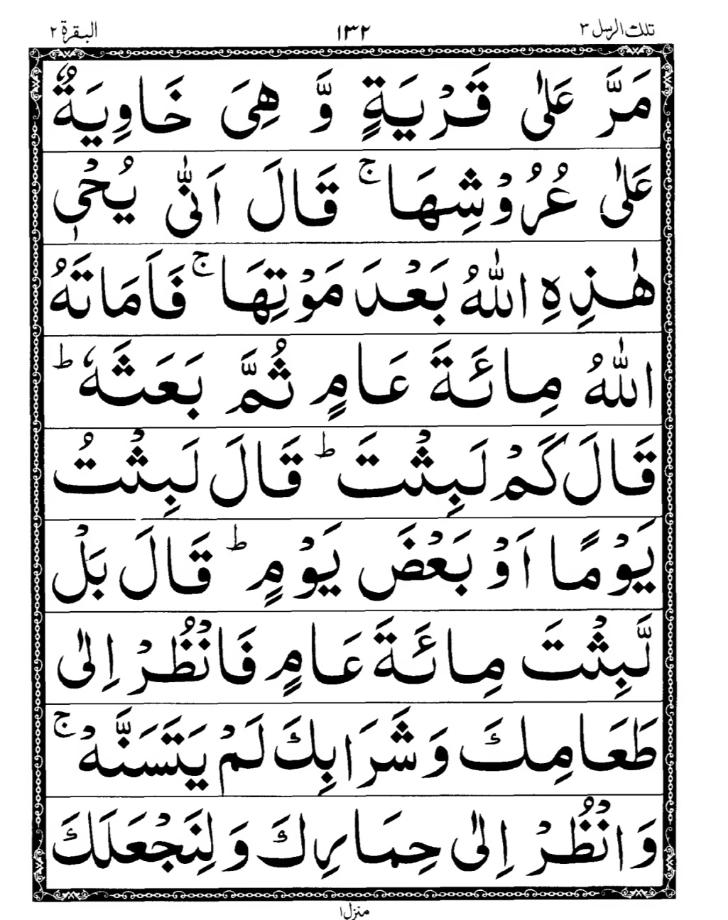 تلك الرسل ٣ ١٣٢ البقرة ٢
مَرَّ عَلٰى قَرْيَةٍ وَّ هِىَ خَاوِيَةٌ
عَلٰى عُرُوْشِهَا ۚ قَالَ اَنّٰى يُحْىٖ
هٰذِهِ اللّٰهُ بَعْدَ مَوْتِهَا ۚ فَاَمَاتَهُ
اللّٰهُ مِائَةَ عَامٍ ثُمَّ بَعَثَهٗ ؕ
قَالَ كَمْ لَبِثْتَ ؕ قَالَ لَبِثْتُ
يَوْمًا اَوْ بَعْضَ يَوْمٍ ؕ قَالَ بَلْ
لَّبِثْتَ مِائَةَ عَامٍ فَانْظُرْ اِلٰى
طَعَامِكَ وَشَرَابِكَ لَمْ يَتَسَنَّهْ ۚ
وَانْظُرْ اِلٰى حِمَارِكَ وَلِنَجْعَلَكَ
منزل١